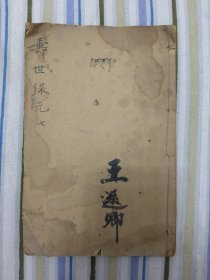 壽世保元 七
王遜卿